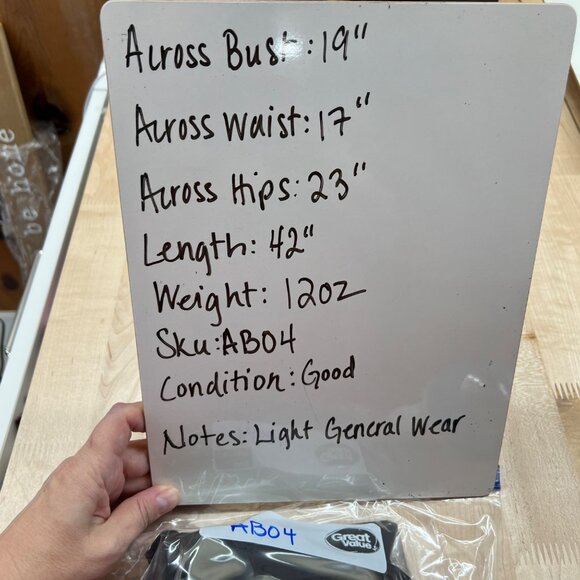 Across Bust: 19"
Across Waist: 17"
Across Hips: 23"
Length: 42"
Weight: 12oz
Sku: AB04
Condition: Good
Notes: Light General Wear
AB04
Great Value
be home